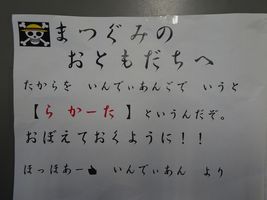 まつぐみの
おともだちへ
たからを いんでぃあんごで いうと
【らかーた】というんだぞ。
おぼえておくように！！
ほっほあー いんでぃあん より